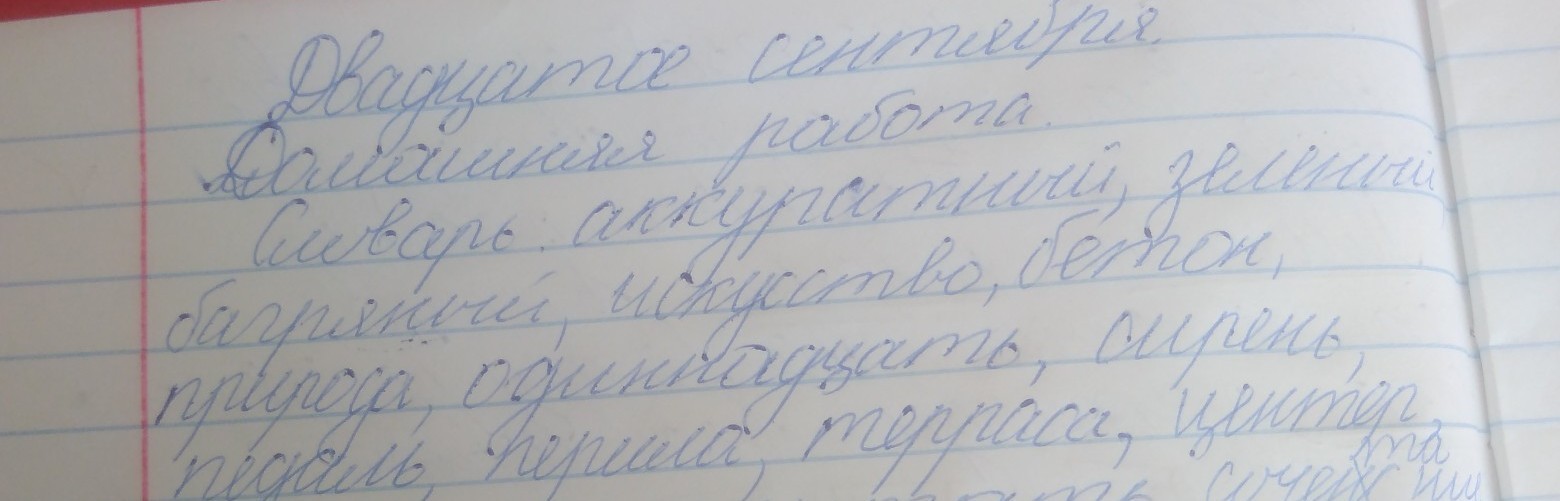 Двадцатое сентября.
Домашняя работа.
Словарь. аккуратный, зеленый,
багряный, искусство, бетон,
природа, одиннадцать, сирень,
педаль, перила, терраса, центер,
та